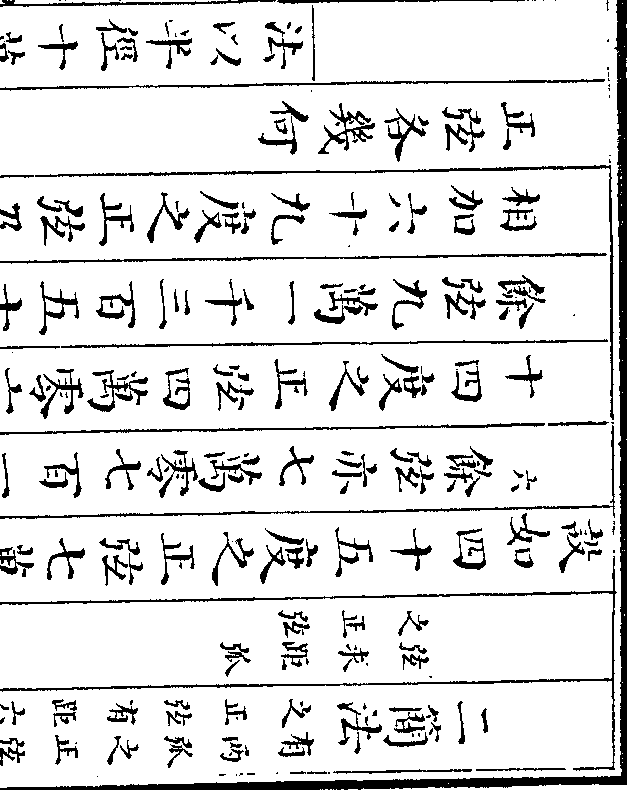 二簡法
有兩弧之正弦
之正弦有距六
弦求距弧
之正弦
設如四十五度之正弦七萬
六餘弦亦七萬零七百一
十四度之正弦四萬零
餘弦九萬一千三百五十
相加六十九度之正弦及
正弦各幾何
法以半徑十萬